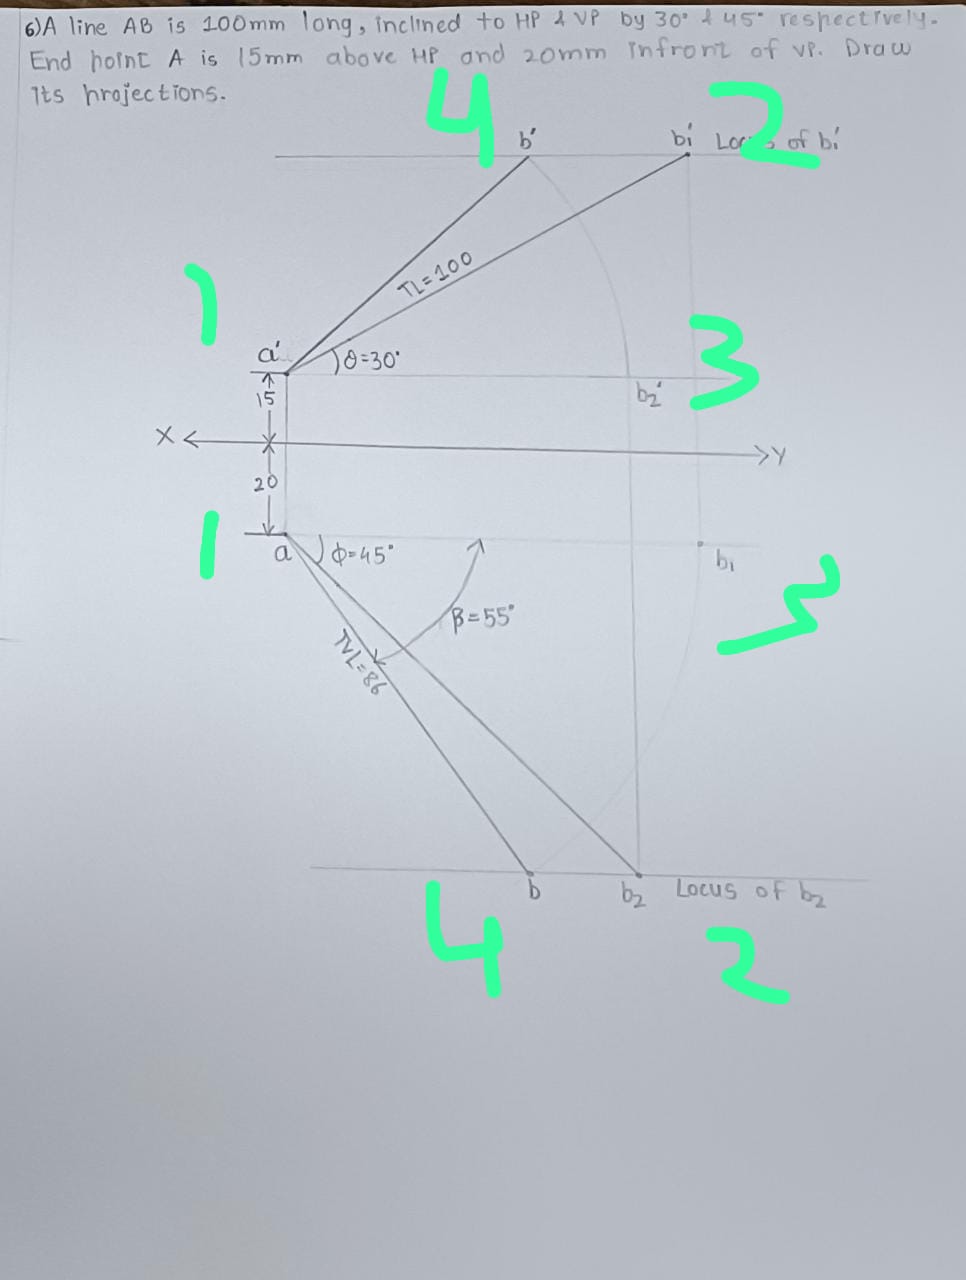 6)A line AB is 100mm long, inclined to HP & VP by 30° & 45° respectively.
End point A is 15mm above HP and 20mm infront of VP. Draw
its projections.
4
2
b'
b1' Locus of b1'
1
TL=100
3
a'
θ=30°
15
b2'
X
Y
20
1
a
φ=45°
b1
3
β=55°
TVL=86
b
b2
Locus of b2
4
2